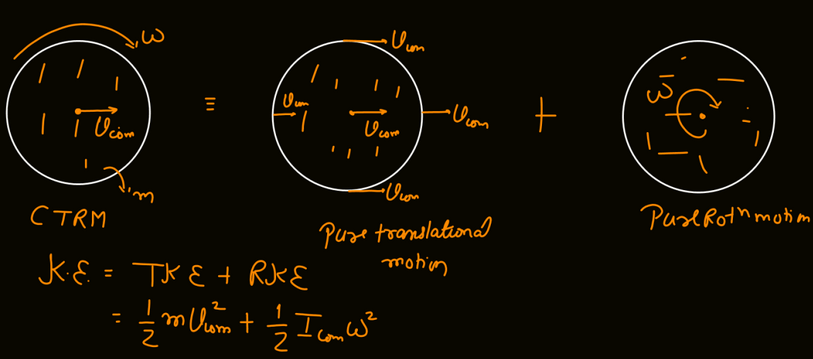 ω
V_com
m
CTRM
≡
V_com
V_com
V_com
V_com
V_com
Pure translational
motion
+
ω
Pure Rotⁿ motion
K.E. = TKE + RKE
= 1/2 m V_com² + 1/2 I_com ω²